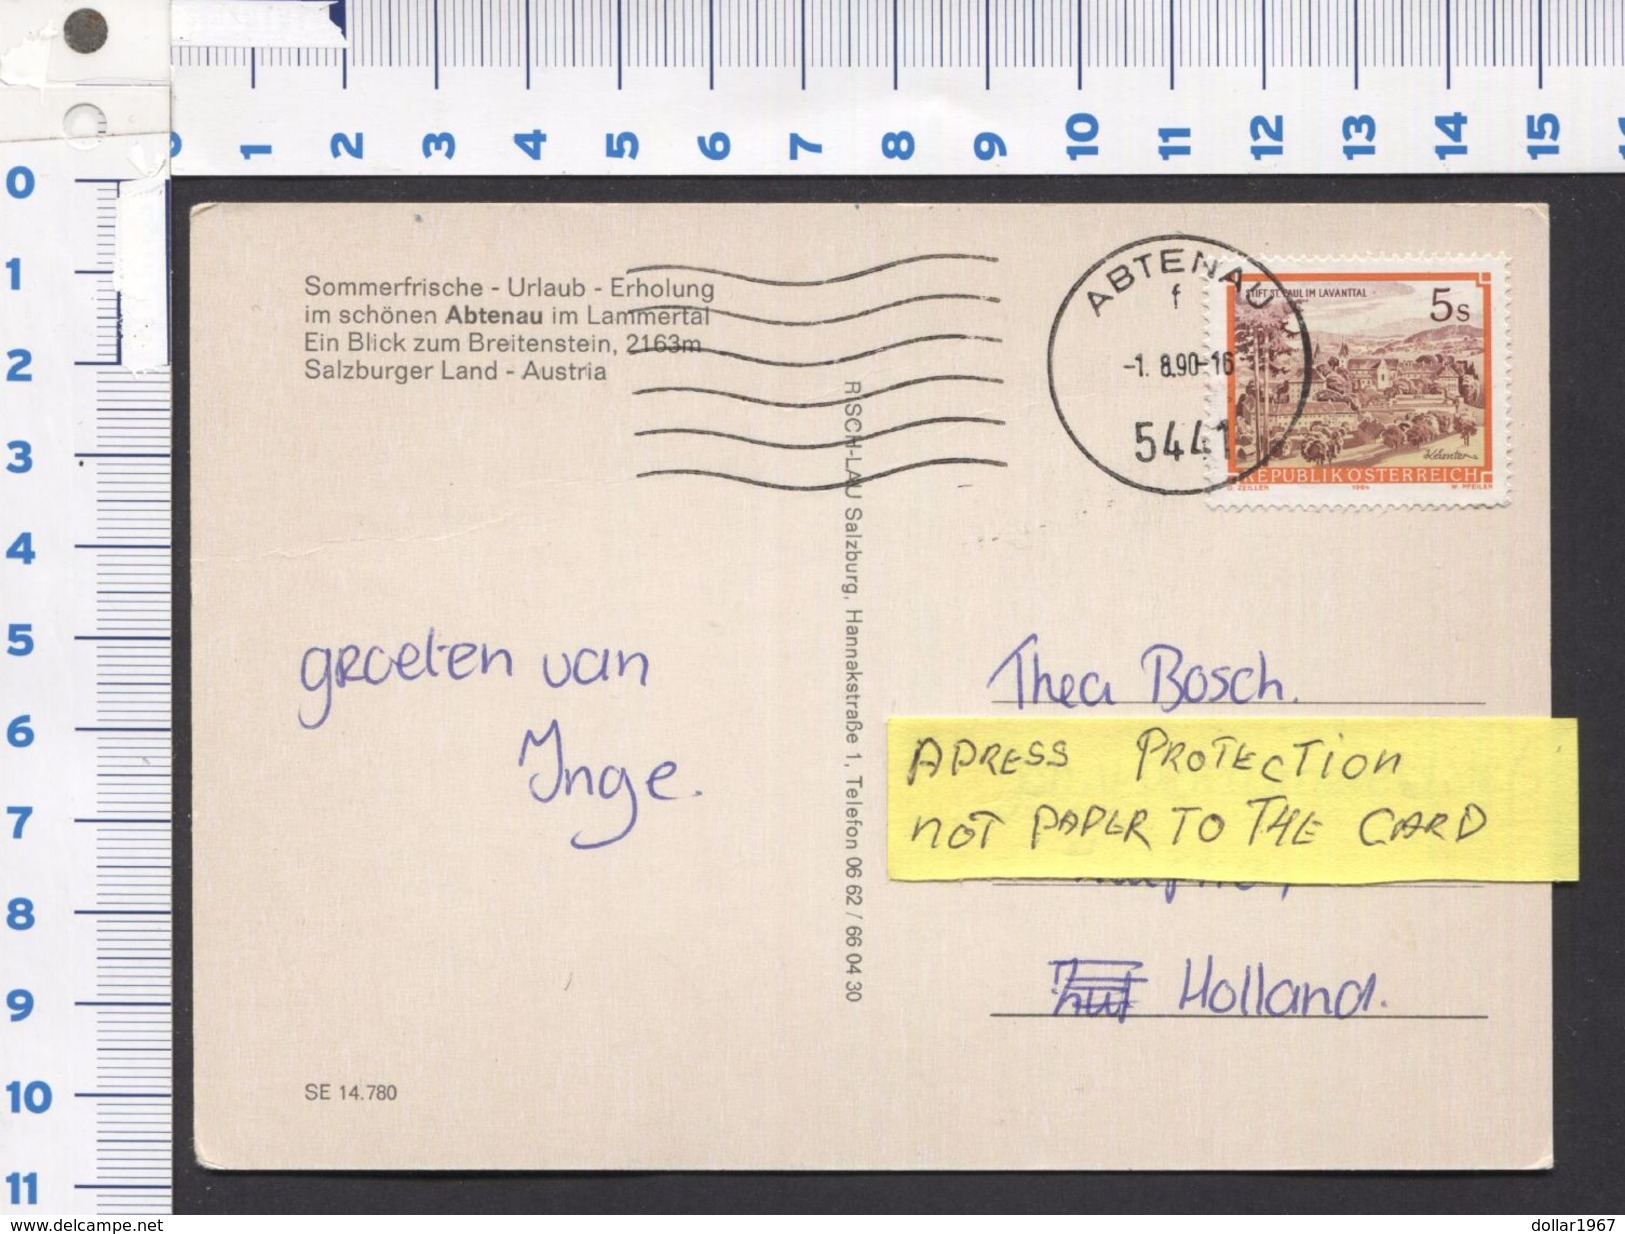 0 1 2 3 4 5 6 7 8 9 10 11 12 13 14 15
0
1
2
3
4
5
6
7
8
9
10
11
Sommerfrische - Urlaub - Erholung
im schönen Abtenau im Lammertal
Ein Blick zum Breitenstein, 2163m
Salzburger Land - Austria
groeten van
Inge.
SE 14.780
RISCH-LAU Salzburg, Hannakstraße 1, Telefon 06 62 / 66 04 30
ABTENAU
f
-1. 8.90-16
5441
STIFT ST. PAUL IM LAVANTTAL
5s
Kärnten
REPUBLIK ÖSTERREICH
O. ZEILLER 1984 W. PFEILER
Thea Bosch.
ADRESS PROTECTION
NOT PAPER TO THE CARD
Holland.
www.delcampe.net
dollar1967